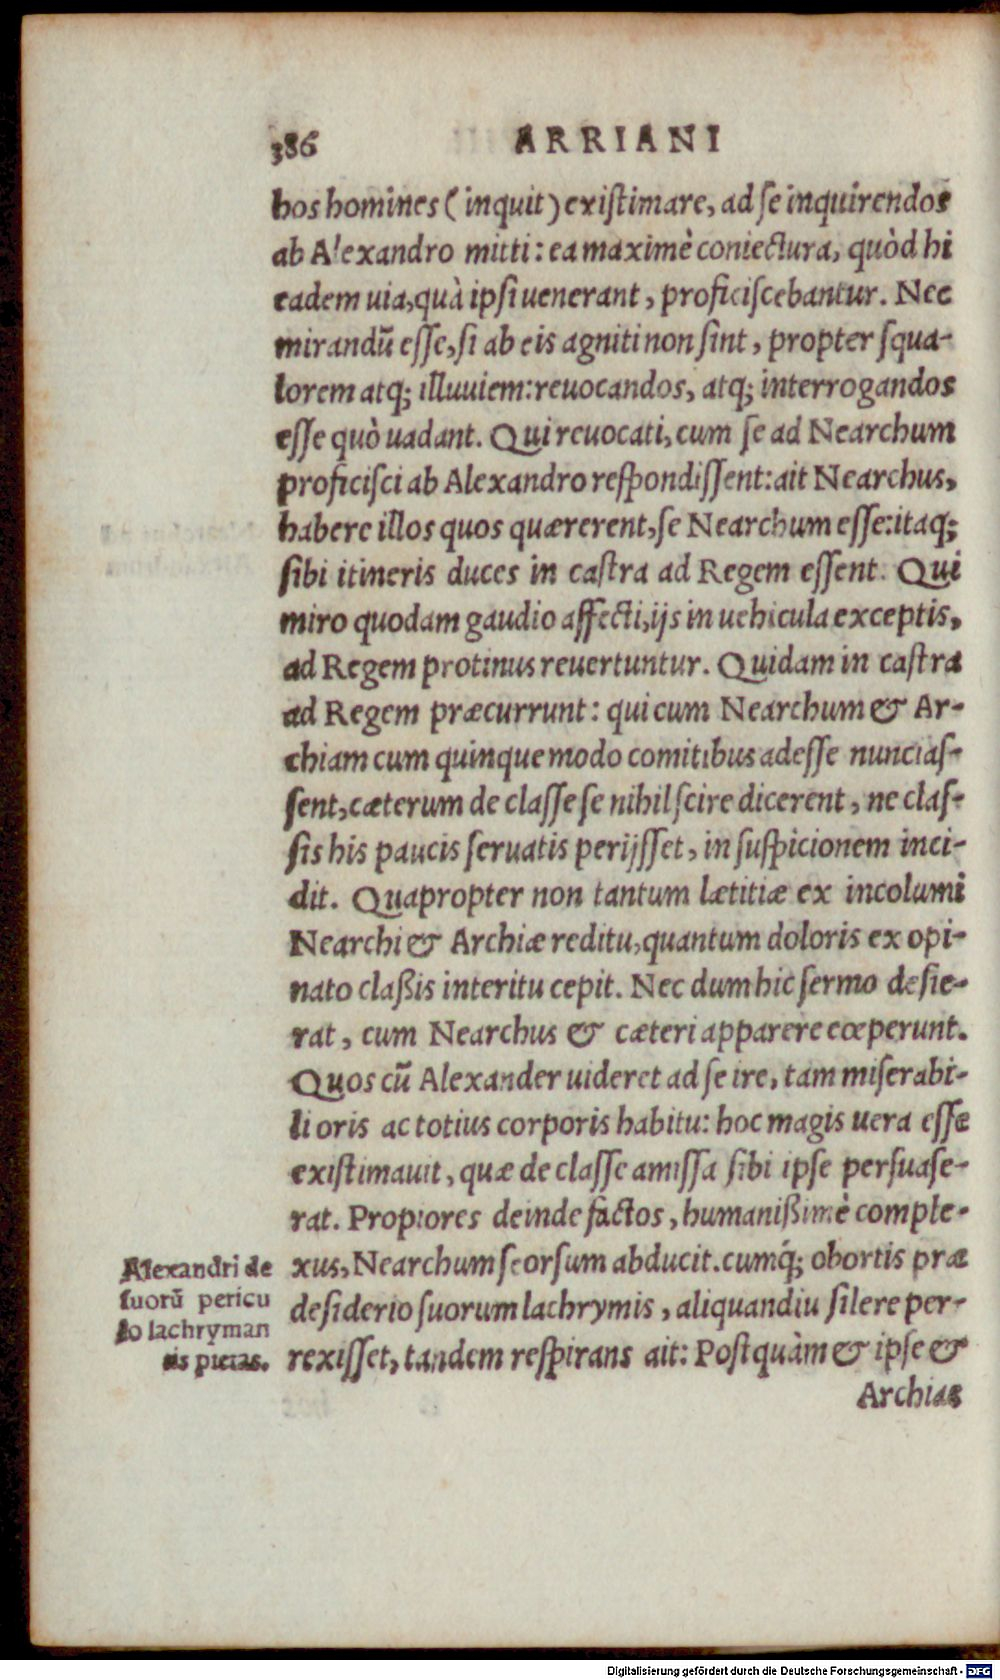 386 ARRIANI
hos homines (inquit) existimare, ad se inquirendos
ab Alexandro mitti: ea maximè coniectura, quòd hi
eadem uia, quà ipsi uenerant, proficiscebantur. Nec
mirandũ esse, si ab eis agniti non sint, propter squa-
lorem atq; illuuiem: reuocandos, atq; interrogandos
esse quò uadant. Qui reuocati, cum se ad Nearchum
proficisci ab Alexandro respondissent: ait Nearchus,
habere illos quos quærerent, se Nearchum esse: itaq;
sibi itineris duces in castra ad Regem essent. Qui
miro quodam gaudio affecti, ijs in uehicula exceptis,
ad Regem protinus reuertuntur. Quidam in castra
ad Regem præcurrunt: qui cum Nearchum & Ar-
chiam cum quinque modo comitibus adesse nuncias-
sent, cæterum de classe se nihil scire dicerent, ne clas-
sis his paucis seruatis perijsset, in suspicionem inci-
dit. Quapropter non tantum lætitiæ ex incolumi
Nearchi & Archiæ reditu, quantum doloris ex opi-
nato claßis interitu cepit. Nec dum hic sermo desie-
rat, cum Nearchus & cæteri apparere cœperunt.
Quos cũ Alexander uideret ad se ire, tam miserabi-
li oris ac totius corporis habitu: hoc magis uera esse
existimauit, quæ de classe amissa sibi ipse persuase-
rat. Propiores deinde factos, humanißimè comple-
xus, Nearchum seorsum abducit. cumq́; obortis præ
desiderio suorum lachrymis, aliquandiu silere per-
rexisset, tandem respirans ait: Postquàm & ipse &
Archias
Alexandri de
suorũ pericu
lo lachryman
tis pietas.
Digitalisierung gefördert durch die Deutsche Forschungsgemeinschaft - DFG